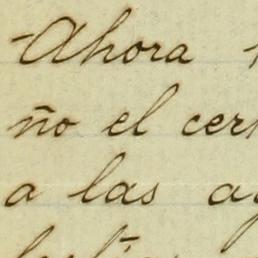 -Ahora
ño el cer
a las a